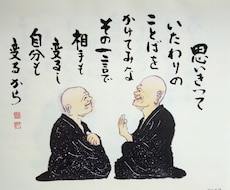 思いきって
いたわりの
ことばを
かけてみな
その一言で
相手も
変るし
自分も
変るから